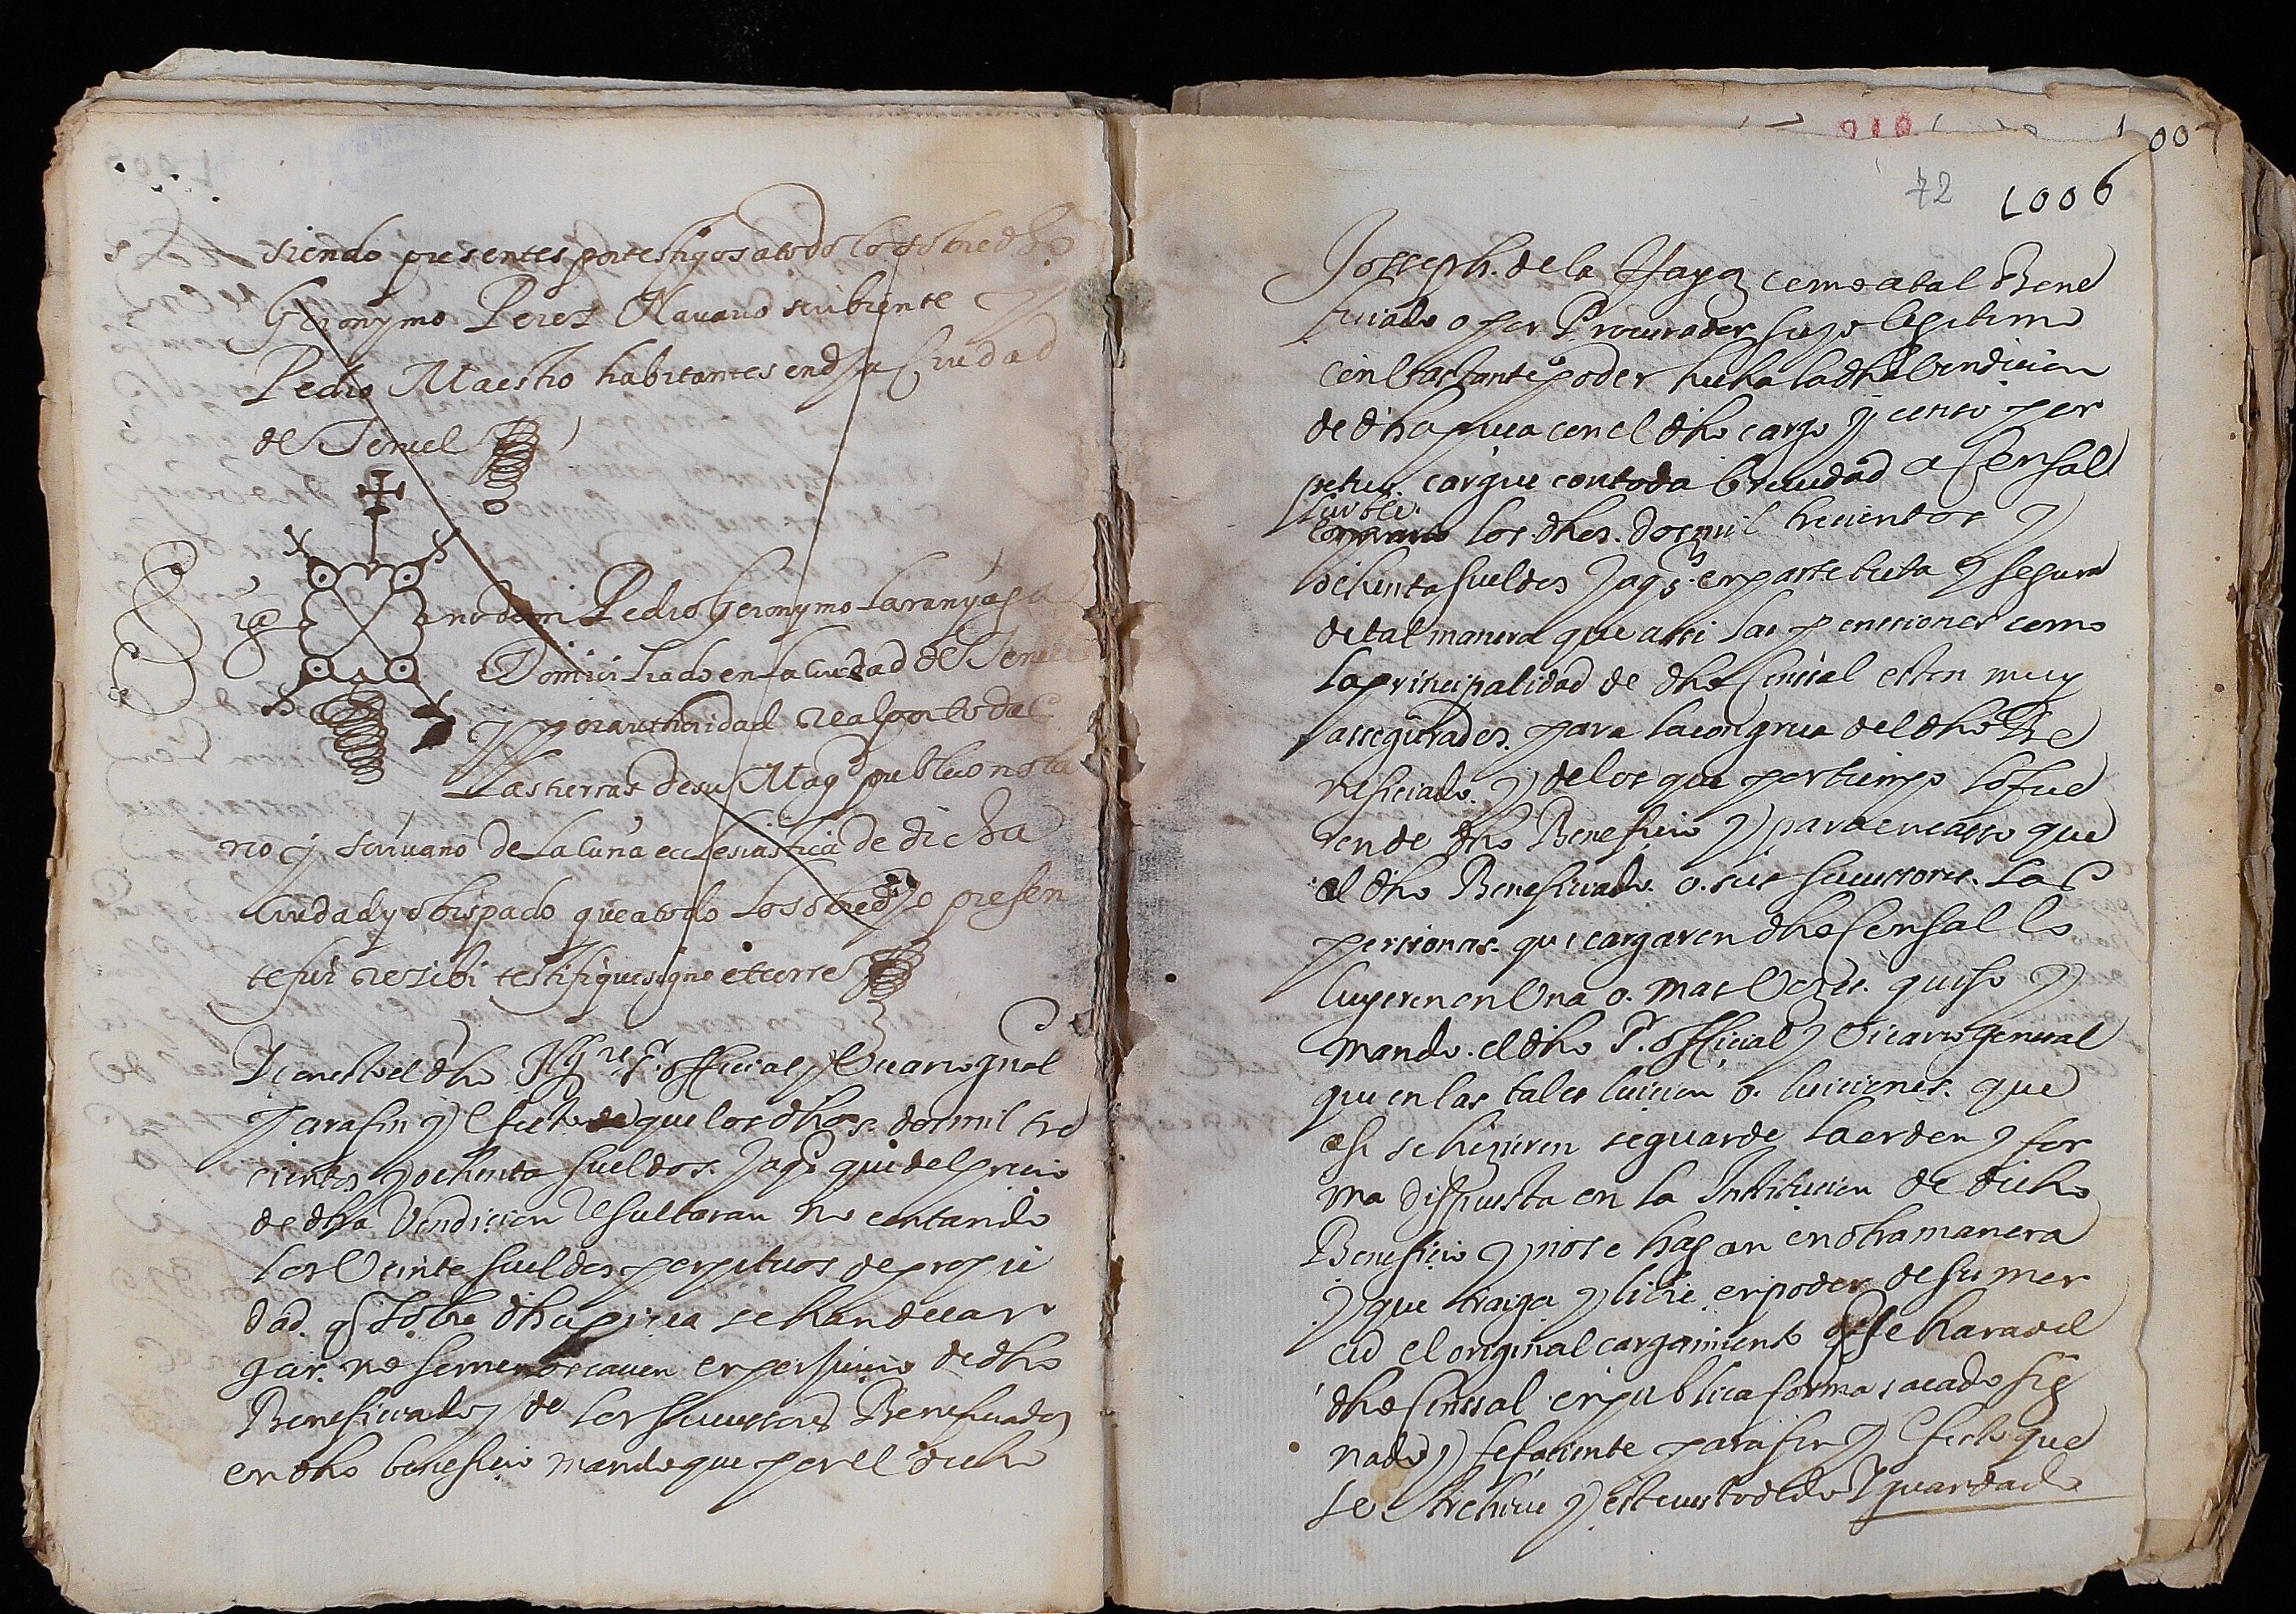 siendo presentes por testigos a todo lo sobredho
Geronymo Perez Nauarro scribiente y
Pedro Maestro habitantes en dha Ciudad
de Teruel
Sig no de mi Pedro Geronymo Laranyaga
Domiciliado en la Ciudad de Teruel
y por authoridad real por todas
las tierras de su Magd publico nota
rio y scriuano de la curia ecclesiastica de dicha
Ciudad y obispado que a todo lo sobredho presen
te fui recibi testifique signe et cerre
Y con esto el dho Sr official y Vicario gnal
para fin y effecto de que los dhos dos mil tre
cientos y ochenta sueldos Jaqs que del precio
de dha Vendicion resultaran no contando
los Veinte sueldos perpetuos de propie
dad q sobre dha pieça se han de car
gar no se menoscauen en perjuicio de dho
Beneficiado y de los sucessores Beneficiados
en dho beneficio mando que por el dicho
72 1006
007
Josseph de la Haya como a tal Bene
ficiado o por Procurador suyo legitimo
con bastante poder hecha la dha Vendicion
de dha pieça con el dho cargo y censo per
petuo cargue con toda breuedad a Censal
luible
los dhos dos mil trecientos y
ochenta sueldos Jaqs en parte tuta y segura
de tal manera que assi las penssiones como
la principalidad de dho Censal esten muy
assegurados para la congrua del dho Be
neficiado y de los que por tiempo lo fue
ren de dho Beneficio y para en casso que
el dho Beneficiado o sus sucessores las
perssonas que cargaren dho Censal lo
luyeren en Una o mas Vezes quiso y
mando el dho Sr official y Vicario general
que en las tales luicion o luiciones que
assi se hizieren se guarde la orden y for
ma dispuesta en la Institucion de dicho
Beneficio y no se hagan en otra manera
y que traiga y libre en poder de su mer
ced el original cargamiento q se hara del
dho Censsal en publica forma sacado sig
nado y fefaciente para fin y effecto que
se Archiue y este custodido y guardado